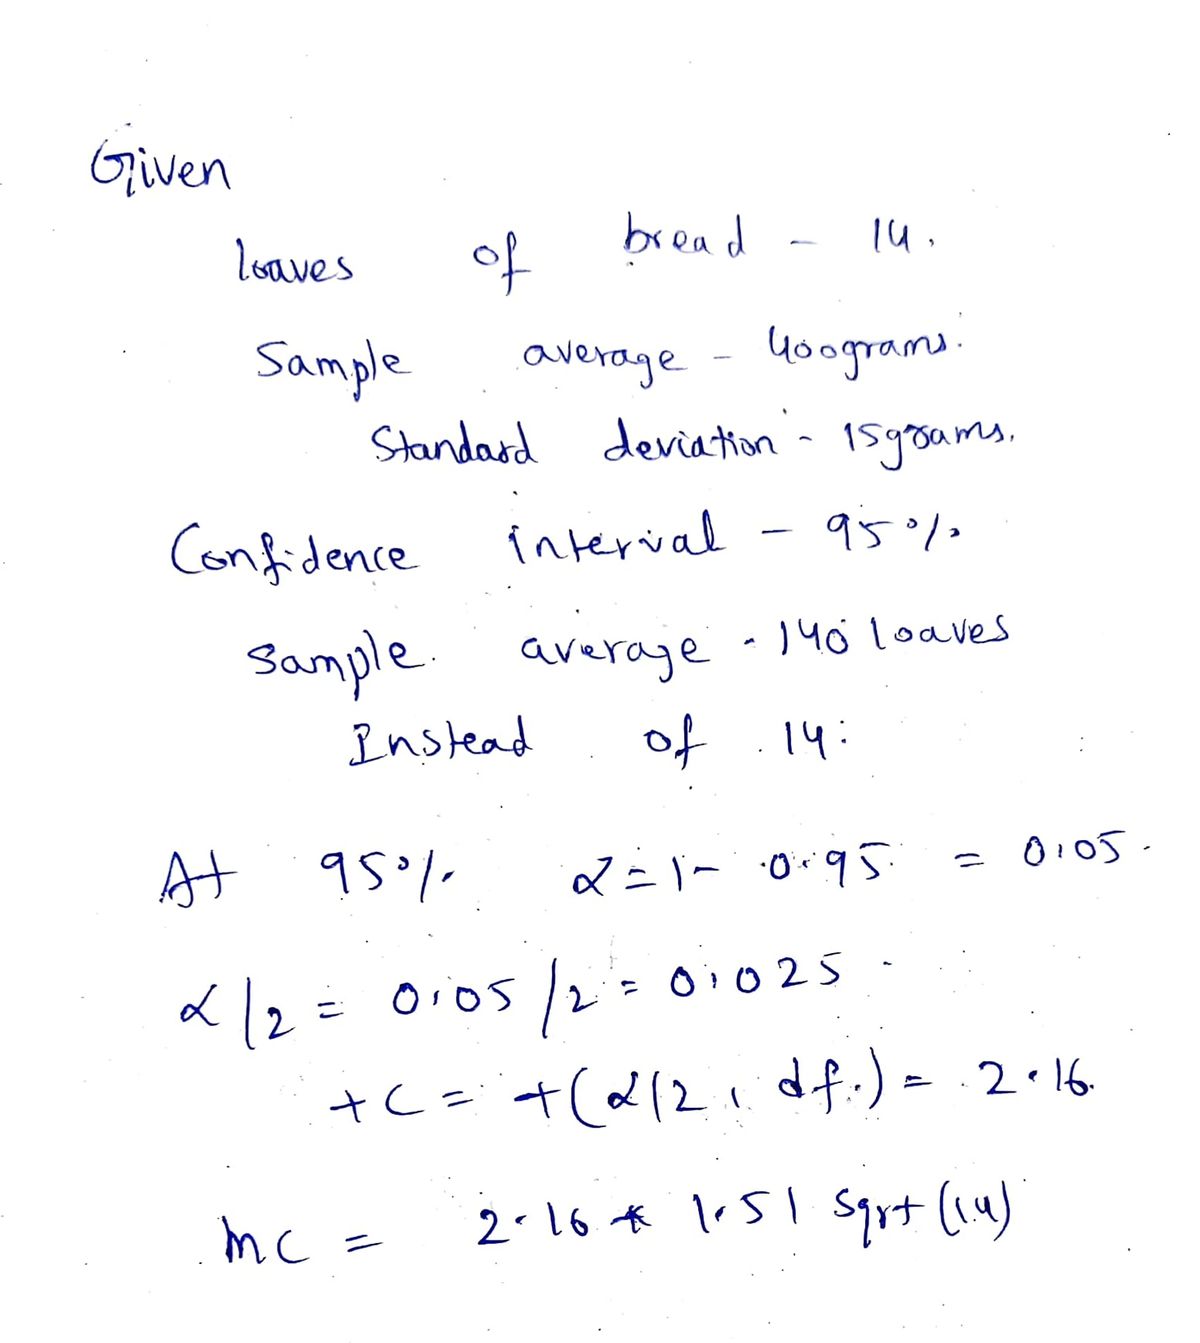 Given
loaves of bread - 14.
Sample average - 400grams.
Standard deviation - 15grams.
Confidence interval - 95%
Sample average - 140 loaves
Instead of 14:
At 95% α = 1 - 0.95 = 0.05.
α/2 = 0.05/2 = 0.025
tc = t(α/2, df.) = 2.16.
mc = 2.16 * 1.51 sqrt(14)